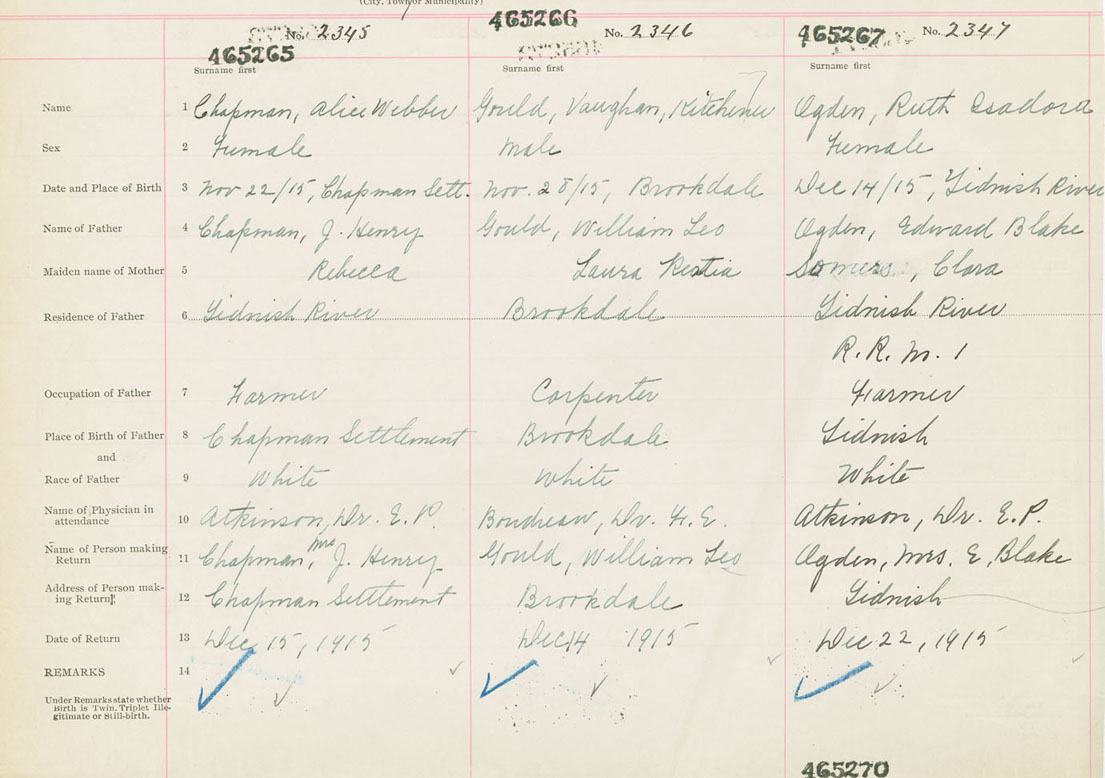 (City, Town or Municipality)
465266
No. 2345 No. 2346 465267 No. 2347
465265
Surname first Surname first Surname first
Name 1 Chapman, Alice Webber Gould, Vaughan, Kitchener Ogden, Ruth Isadora
Sex 2 Female Male Female
Date and Place of Birth 3 Nov 22/15, Chapman Sett. Nov. 28/15, Brookdale Dec 14/15, Tidnish River
Name of Father 4 Chapman, J. Henry Gould, William Leo Ogden, Edward Blake
Maiden name of Mother 5 Rebecca Laura Restia Somers, Clara
Residence of Father 6 Tidnish River Brookdale Tidnish River
R.R. No. 1
Occupation of Father 7 Farmer Carpenter Farmer
Place of Birth of Father 8 Chapman Settlement Brookdale Tidnish
and
Race of Father 9 White White White
Name of Physician in
attendance 10 Atkinson, Dr. E. P. Boudreau, Dr. F. E. Atkinson, Dr. E.P.
Name of Person making
Return 11 Chapman, Mrs J. Henry Gould, William Leo Ogden, Mrs. E. Blake
Address of Person mak-
ing Return 12 Chapman Settlement Brookdale Tidnish
Date of Return 13 Dec 15, 1915 Dec 14 1915 Dec 22, 1915
REMARKS 14
Under Remarks state whether
Birth is Twin, Triplet Ille-
gitimate or Still-birth.
465270